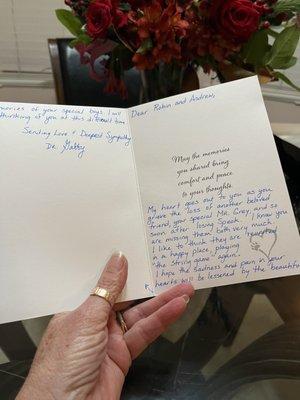 Dear Robin and Andrew,
May the memories
you shared bring
comfort and peace
to your thoughts.
My heart goes out to you as you
grieve the loss of another beloved
friend, your special Mr. Grey, and so
soon after losing Spanky. I know you
are missing them both very much.
I like to think they are together
in a happy place, playing
"the string game" again.
I hope the sadness and pain in your
hearts will be lessened by the beautiful
memories of your special boys. I will
thinking of you at this difficult time.
Sending Love & Deepest Sympathy
Dr. Gabby